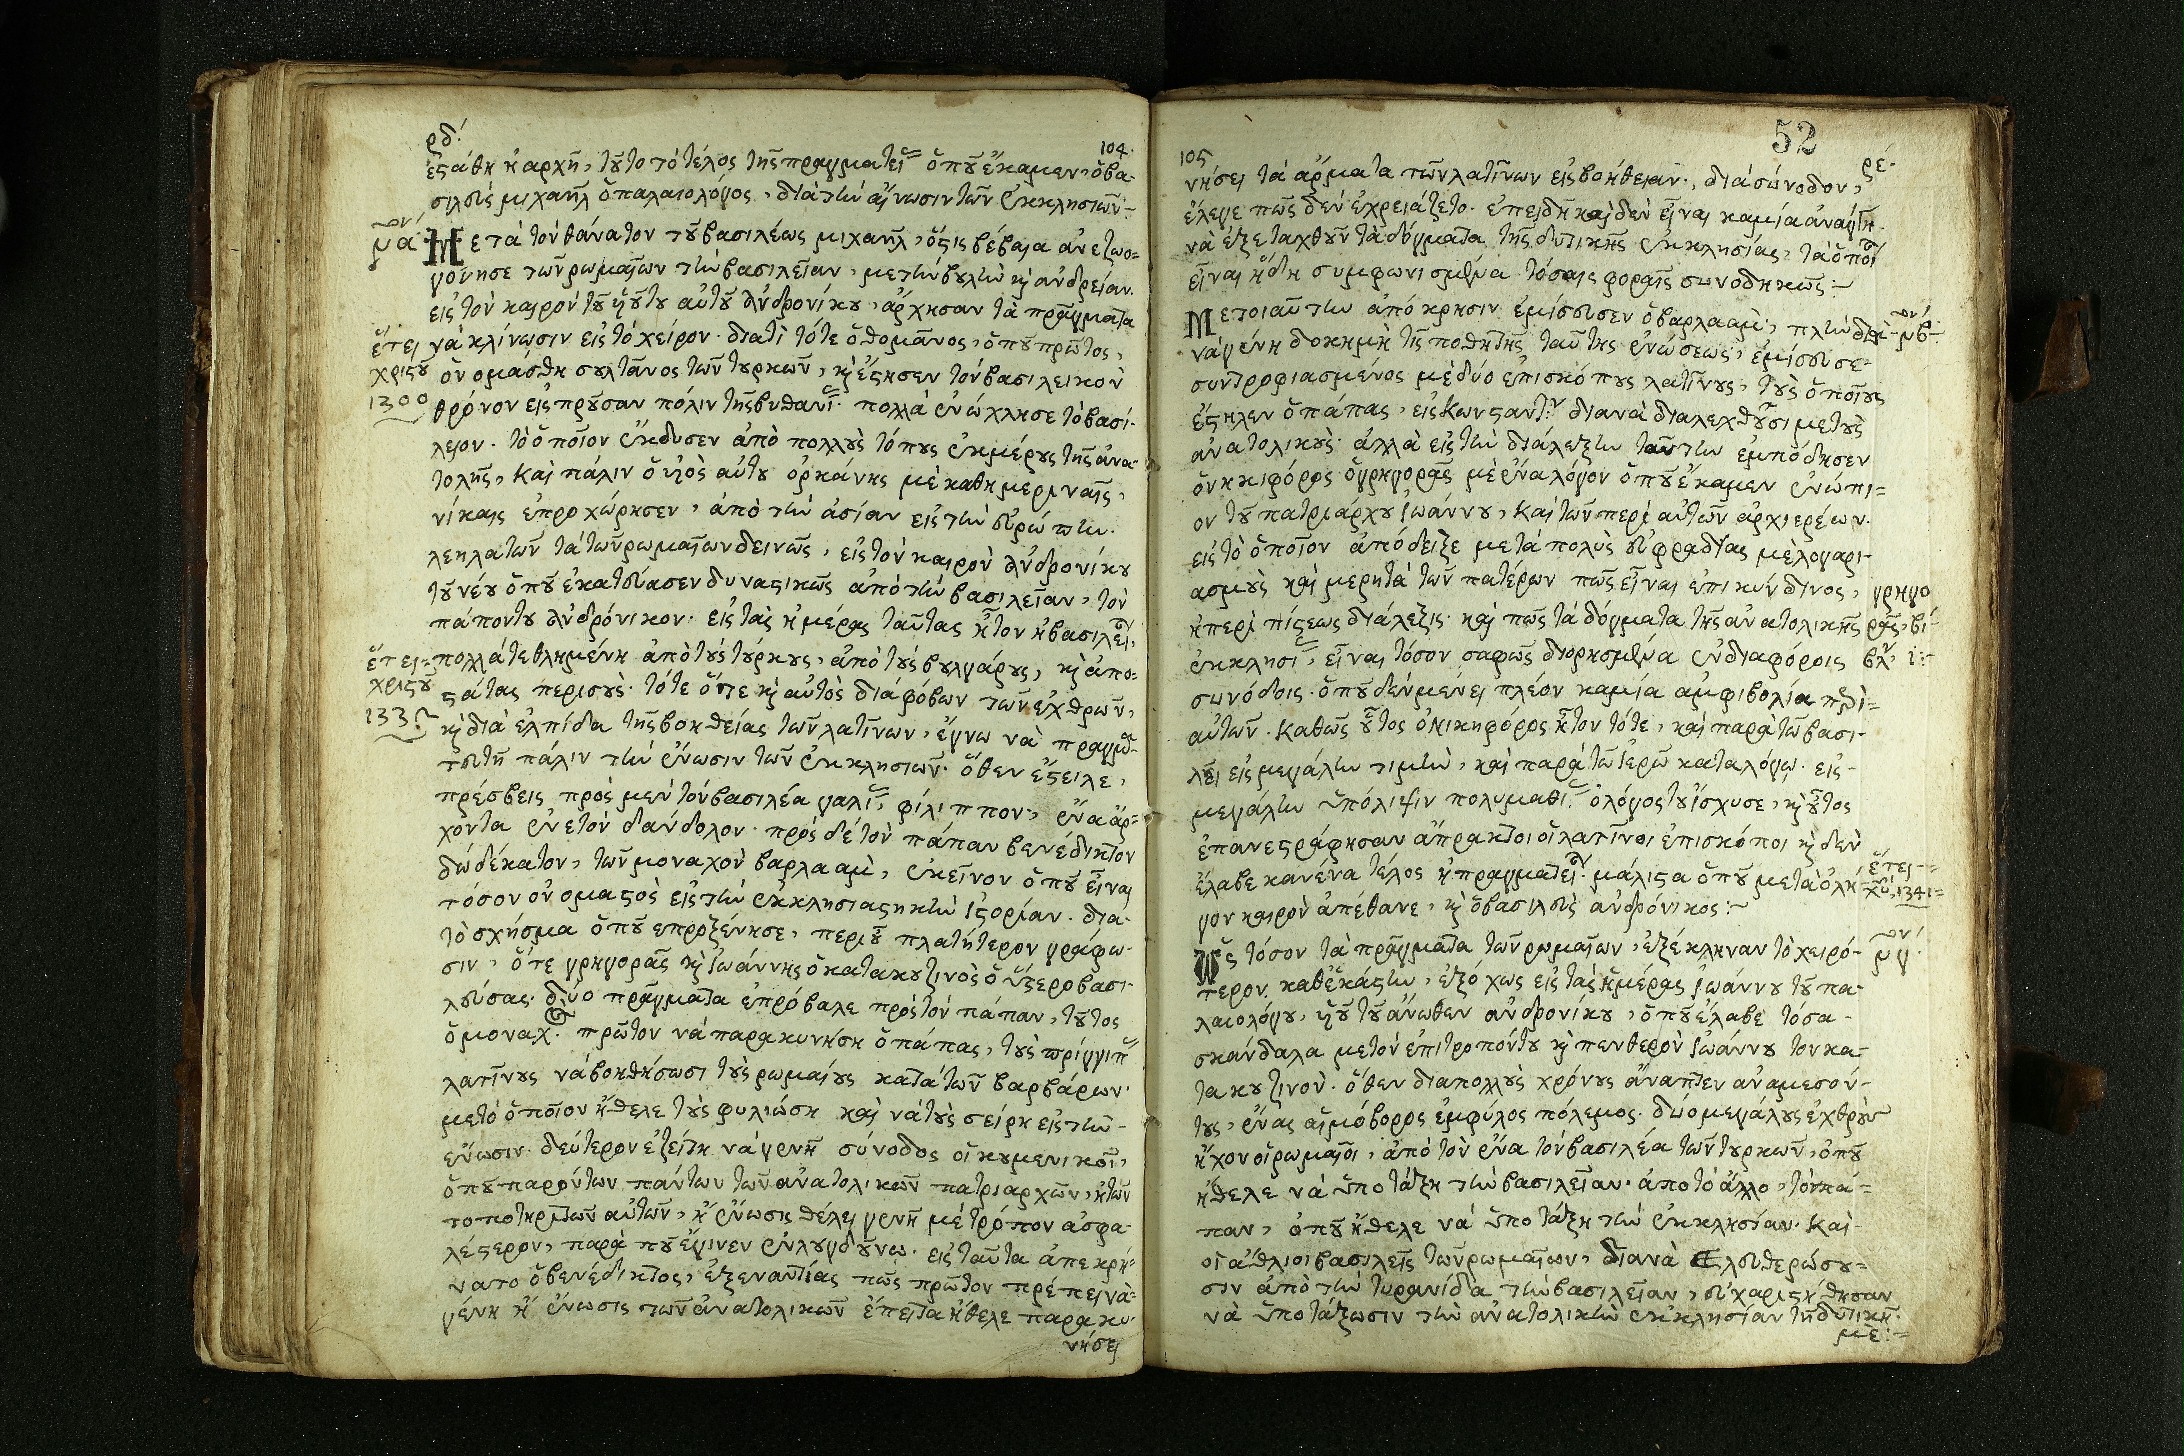 ρδ΄ 104.
ἐστάθη ἡ ἀρχή, τοῦτο τὸ τέλος τῆς πραγματείας ὁποῦ ἔκαμεν, ὁ βα-
σιλεὺς μιχαὴλ ὁ παλαιολόγος, διὰ τὴν αἴνωσιν τῶν ἐκκλησιῶν:-
μα΄ον Μετὰ τὸν θάνατον τοῦ βασιλέως μιχαὴλ, ὅστις βέβαια ἀνεζωο=
γόνησε τῶν ρωμαίων τὴν βασιλείαν, με τὴν βουλὴν κὶ ἀνδρείαν.
εἰς τὸν καιρὸν τοῦ ἡοῦ του αὐτοῦ ἀνδρονίκου, ἄρχησαν τὰ πράγματα
ἔτει νὰ κλίνωσιν εἰς τὸ χεῖρον. διατὶ τότε ὀθομάνος, ὁποῦ πρῶτος,
χριστοῦ ὀνομάσθη σουλτάνος τῶν τουρκῶν, κὶ ἔστησεν τὸν βασιλεικὸν
1300 θρόνον εἰς προῦσαν πόλιν τῆς βυθανίας. πολλὰ ἐνώχλησε τὸ βασί-
λειον. τὸ ὁποῖον ἔκδυσεν ἀπὸ πολλοὺς τόπους ἐκ μέρους τῆς ἀνα-
τολῆς, καὶ πάλιν ὁ υἱὸς αὐτοῦ ὀρκάνης μὲ καθημεριναῖς,
νίκαις ἐπροχώρησεν, ἀπὸ τὴν ἀσίαν εἰς τὴν εὐρώπην.
λεηλατῶν τὰ τῶν ρωμαίων δεινῶς, εἰς τὸν καιρὸν ἀνδρονίκου
τοῦ νέου ὁποῦ ἐκατεύασεν δυναστικῶς ἀπὸ τὴν βασιλείαν, τὸν
πάπον του ἀνδρόνικον. εἰς τὰς ἡμέρας ταύτας ἦτον ἡ βασιλεία,
ἔτει= πολλὰ τεθλημένη ἀπὸ τοὺς τούρκους, ἀπὸ τοὺς βουλγάρους, κὶ ἀπο=
χριστοῦ στάτας περισούς. τότε ὅτε κὶ αὐτὸς διὰ φόβων τῶν ἐχθρῶν,
κὶ διὰ ἐλπίδα τῆς βοηθείας τῶν λατίνων, ἔγνω νὰ πραγμα-
τευτῇ πάλιν τὴν ἕνωσιν τῶν ἐκκλησιῶν. ὅθεν ἔστειλε,
πρέσβεις πρὸς μὲν τὸν βασιλέα γαλίας, φίλιππον, ἕνα ἄρ=
χοντα ἐνετὸν δάνδολον. πρὸς δὲ τὸν πάπαν βενέδικτον
δωδέκατον, τὸν μοναχὸν βαρλαὰμ, ἐκεῖνον ὁποῦ εἶναι
τόσον ὀνομαστὸς εἰς τὴν ἐκκλησιαστηκὴν ἱστορίαν. δια-
τὸ σχῆσμα ὁποῦ ἐπροξένησε, περὶ οὗ πλατήτερον γράφω-
σιν, ὅτε γρηγορᾶς κὶ ἰωάννης ὁ κατακουζινὸς ὁ ὕστερο βασι-
λεύσας. δύο πράγματα ἐπρόβαλε πρὸς τὸν πάπαν, τοῦτος
ὁ μοναχ. πρῶτον νὰ παρακυνήση ὁ πάπας, τοὺς πρίγγιπας
λατίνους νὰ βοηθήσωσι τοὺς ρωμαίους κατὰ τῶν βαρβάρων.
μετὸ ὁποῖον ἤθελε τοὺς φυλιώση καὶ νὰ τοὺς σείρη εἰς τὴν-
ἕνωσιν. δεύτερον ἐζείτη νὰ γενῇ σύνοδος οἰκουμενικὴ,
ὁποῦ παρόντων πάντων τῶν ἀνατολικῶν πατριαρχῶν, ἢ τῶν
τοποτηριτῶν αὐτῶν, ἡ ἕνωσις θέλει γενῆ μὲ τρόπον ἀσφα-
λέστερον, παρὰ ποῦ ἔγινεν ἐν λουγδούνω. εἰς ταῦτα ἀπεκρή-
νατο ὁ βενέδικτος, ἐξεναντίας πῶς πρῶτον πρέπει νὰ-
γένη ἡ ἕνωσις τῶν ἀνατολικῶν ἔπειτα ἤθελε παρακυ-
νήσει
105 52 ρέ.
νήσει τὰ ἄρματα τῶν λατίνων εἰς βοήθειαν. διὰ σύνοδον,
ἔλεγε πῶς δὲν ἐχρειάζετο. ἐπειδὴ καὶ δὲν εἶναι καμία ἀνάγκη.
νὰ ἐξεταχθοῦν τὰ δόγματα τῆς δυτικῆς ἐκκλησίας, τὰ ὁποῖα
εἶναι ἤδη συμφωνισμένα τόσαις φοραῖς συνοδηκῶς:-
Με τοιαύτην ἀπόκρησιν ἐμίσσευσεν ὁ βαρλαάμ, πλὴν διὰ- μβ΄ον
νὰ γένη δοκημὴ τῆς ποθητῆς ταύτης ἑνώσεως, ἐμίσσευσε-
συντροφιασμένος μὲ δύο ἐπισκόπους λατίνους, τοὺς ὁποίους
ἔστηλεν ὁ πάπας, εἰς κωνσταντ. διανὰ διαλεχθοῦσι με τοὺς
ἀνατολικούς. ἀλλὰ εἰς τὴν διάλεξιν ταύτην ἐμπόδησεν
ὁ νηκιφόρος ὁ γρηγορᾶς μὲ ἕνα λόγον ὁποῦ ἔκαμεν ἐνώπι=
ον τοῦ πατριάρχου ἰωάννου, καὶ τῶν περὶ αὐτῶν ἀρχιερέων.
εἰς τὸ ὁποῖον ἀπόδειξε μετὰ πολὺς εὐφραδίας μὲ λογαρι-
ασμοὺς καὶ μερητὰ τῶν πατέρων πῶς εἶναι ἐπικύνδινος, γρηγο
ἡ περὶ πίστεως διάλεξις. καὶ πῶς τὰ δόγματα τῆς ἀνατολικῆς ρᾶς, βι-
ἐκκλησίας, εἶναι τόσον σαφῶς διορησμένα ἐν διαφόροις βλ. ι:-
συνόδοις. ὁποῦ δὲν μένει πλέον καμία ἀμφιβολία περὶ=
αὐτῶν. καθὼς οὗτος ὁ νικηφόρος ἦτον τότε, καὶ παρὰ τῶ βασι-
λεῖ εἰς μεγάλην τιμὴν, καὶ παρὰ τῶ ἱερῶ καταλόγω. εἰς-
μεγάλην ὑπόληψιν πολυμαθίας. ὁ λόγος του ἴσχυσε, κὶ οὕτος
ἐπανεστράφησαν ἄπρακτοι οἱ λατίνοι ἐπισκόποι κὶ δὲν
ἔλαβε κανένα τέλος ἡ πραγματεία. μάλιστα ὁποῦ μετὰ ὀλή- ἔτει-=
γον καιρὸν ἀπέθανε, κὶ ὁ βασιλεὺς ἀνδρόνικος:- χῦ, 1341=
Ὡς τόσον τὰ πράγματα τῶν ρωμαίων, ἐξέκληναν τὸ χειρό- μγ΄ον
τερον καθεκάστην, ἐξόχως εἰς τὰς ἡμέρας ἰωάννου τοῦ πα-
λαιολόγου, ἡοῦ τοῦ ἄνωθεν ἀνδρονίκου, ὁποῦ ἔλαβε τόσα-
σκάνδαλα με τὸν ἐπίτροπόν του κὶ πενθερὸν ἰωάννου τον κα-
τακουζινόν. ὅθεν διαπολλοὺς χρόνους ἄναπτεν ἀναμεσόν-
τους, ἕνας αἱμόβορος ἐμφύλος πόλεμος. δύο μεγάλους ἐχθροὺς
ἤχον οἱ ρωμαῖοι, ἀπὸ τὸν ἕνα τὸν βασιλέα τῶν τουρκῶν, ὁποῦ
ἤθελε νὰ ὑποτάξη τὴν βασιλείαν. ἀπὸ τὸ ἄλλο, τὸν πά-=
παν, ὁποῦ ἤθελε νὰ ὑποτάξη τὴν ἐκκλησίαν. καὶ-
οἱ ἄθλιοι βασιλεῖς τῶν ρωμαίων, διανὰ ἐλευθερώσου=
σιν ἀπὸ τὴν τυρανίδα τὴν βασιλείαν, εὐχαριστήθησαν
νὰ ὑποτάξωσιν τὴν ἀνατολικὴν ἐκκλησίαν τῆ δυτικῆ.
μὲ:-=